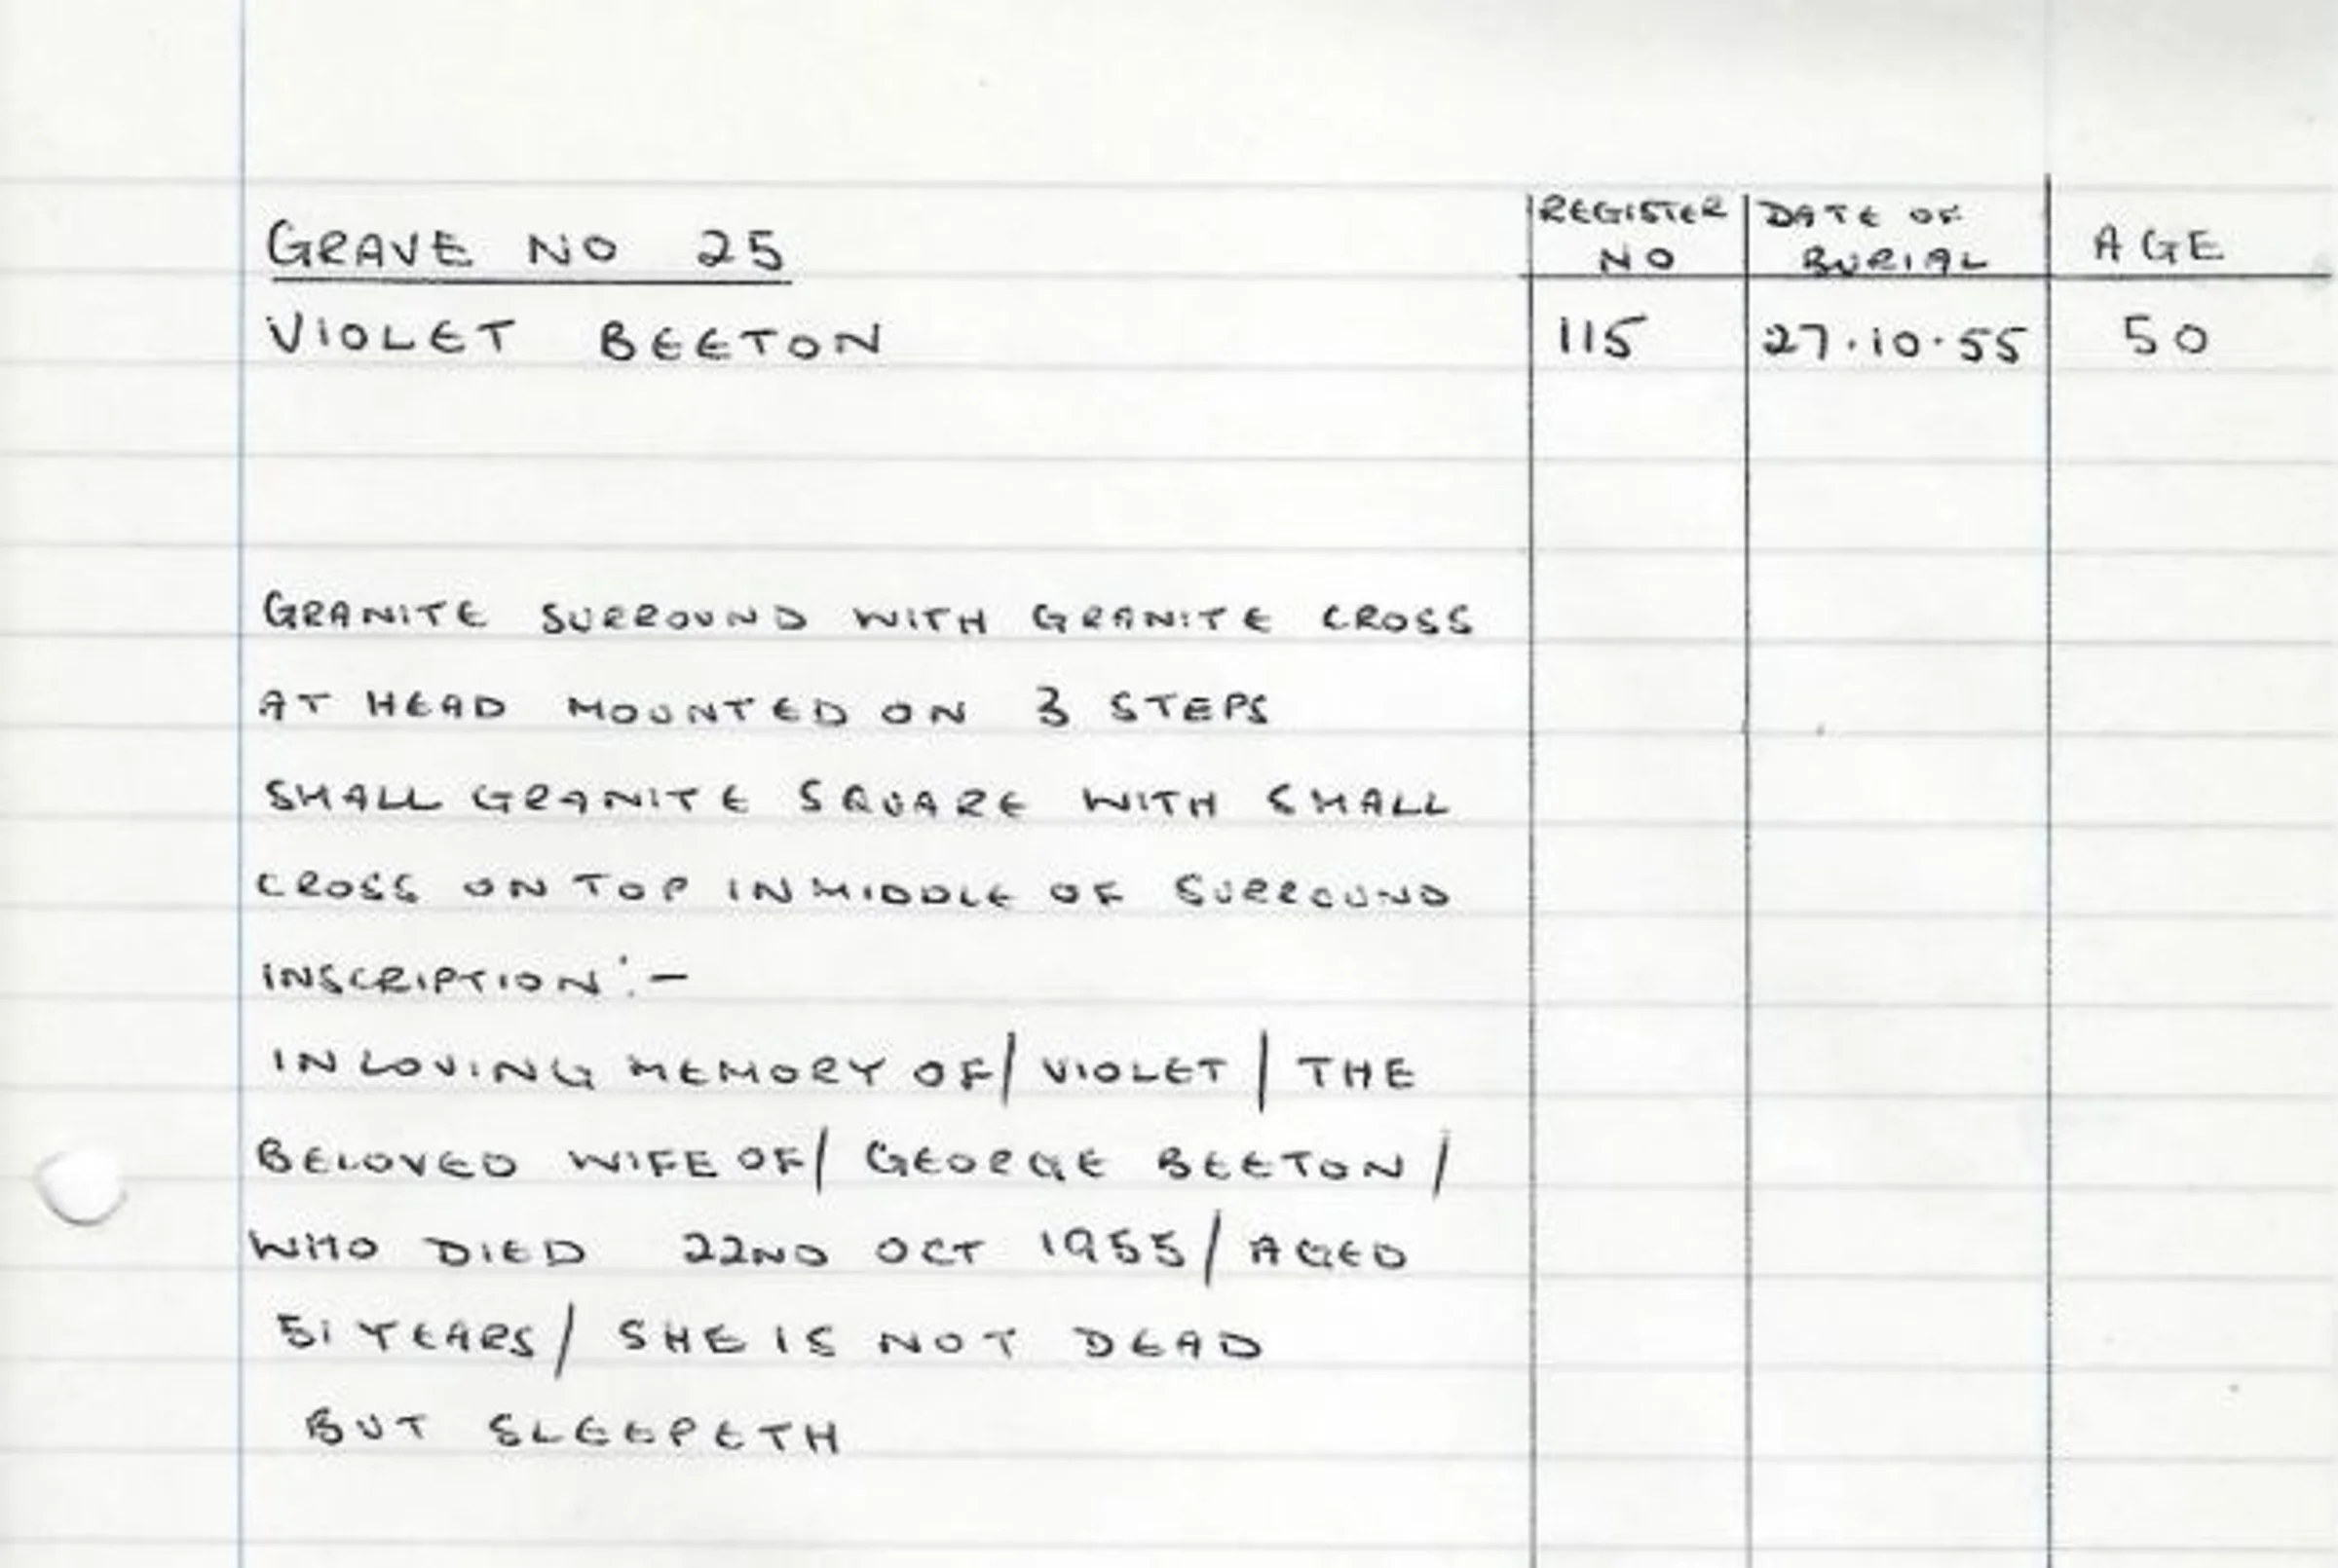 GRAVE NO 25
REGISTER NO
DATE OF BURIAL
AGE
VIOLET BEETON 115 27.10.55 50
GRANITE SURROUND WITH GRANITE CROSS
AT HEAD MOUNTED ON 3 STEPS
SMALL GRANITE SQUARE WITH SMALL
CROSS ON TOP IN MIDDLE OF SURROUND
INSCRIPTION :-
IN LOVING MEMORY OF / VIOLET / THE
BELOVED WIFE OF / GEORGE BEETON /
WHO DIED 22ND OCT 1955 / AGED
51 YEARS / SHE IS NOT DEAD
BUT SLEEPETH